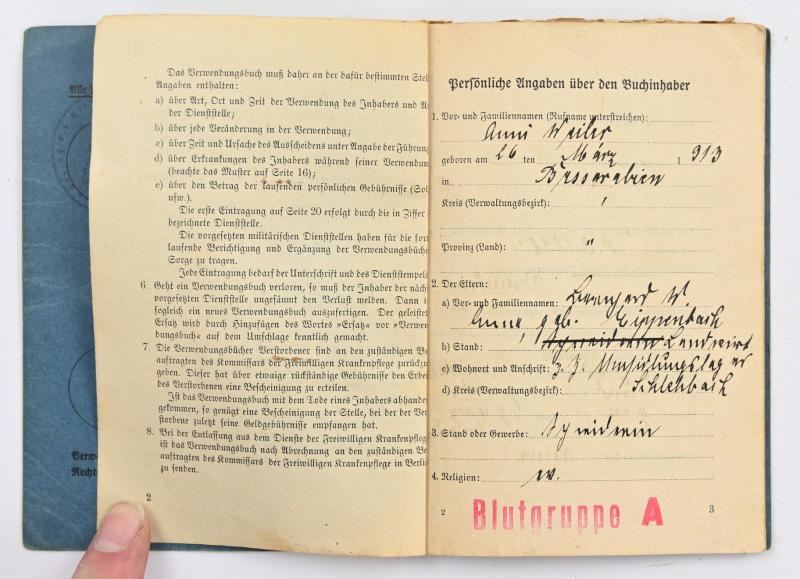 Alle
Das Verwendungsbuch muß daher an der dafür bestimmten Stel
Angaben enthalten:
a) über Art, Ort und Zeit der Verwendung des Inhabers und A
der Dienststelle;
b) über jede Veränderung in der Verwendung;
c) über Zeit und Ursache des Ausscheidens unter Angabe der Führung
d) über Erkrankungen des Inhabers während seiner Verwendung
(beachte das Muster auf Seite 16);
e) über den Betrag der laufenden persönlichen Gebührnisse (Sol
usw.).
Die erste Eintragung auf Seite 20 erfolgt durch die in Ziffer
bezeichnete Dienststelle.
Die vorgesetzten militärischen Dienststellen haben für die fort
laufende Berichtigung und Ergänzung der Verwendungsbüche
Sorge zu tragen.
Jede Eintragung bedarf der Unterschrift und des Dienststempels
6. Geht ein Verwendungsbuch verloren, so muß der Inhaber der näch
vorgesetzten Dienststelle ungesäumt den Verlust melden. Dann i
sogleich ein neues Verwendungsbuch auszufertigen. Der geleistet
Ersatz wird durch Hinzufügen des Wortes »Ersatz« vor »Verwen
dungsbuch« auf dem Umschlage kenntlich gemacht.
7. Die Verwendungsbücher Verstorbener sind an den zuständigen Be
auftragten des Kommissars der Freiwilligen Krankenpflege zurückzu
geben. Dieser hat über etwaige rückständige Gebührnisse den Erbe
des Verstorbenen eine Bescheinigung zu erteilen.
Ist das Verwendungsbuch mit dem Tode eines Inhabers abhande
gekommen, so genügt eine Bescheinigung der Stelle, bei der der Ver
storbene zuletzt seine Geldgebührnisse empfangen hat.
8. Bei der Entlassung aus dem Dienste der Freiwilligen Krankenpflege
ist das Verwendungsbuch nach Abrechnung an den zuständigen Be
auftragten des Kommissars der Freiwilligen Krankenpflege in Berlin
zu senden.
2
Verw
Rechte
Persönliche Angaben über den Buchinhaber
1. Vor- und Familiennamen (Rufname unterstreichen):
Anni Weiler
geboren am 26 ten März 1913
in Bessarabien
Kreis (Verwaltungsbezirk): "
Provinz (Land): "
2. Der Eltern:
a) Vor- und Familiennamen: Leonhard W.
Anna, geb. Eippenbach
b) Stand: Schneiderin Landwirt
c) Wohnort und Anschrift: z. Z. Umsiedlungslager
d) Kreis (Verwaltungsbezirk): Schlehbach
3. Stand oder Gewerbe: Schneiderin
4. Religion: ev.
2 Blutgruppe A 3